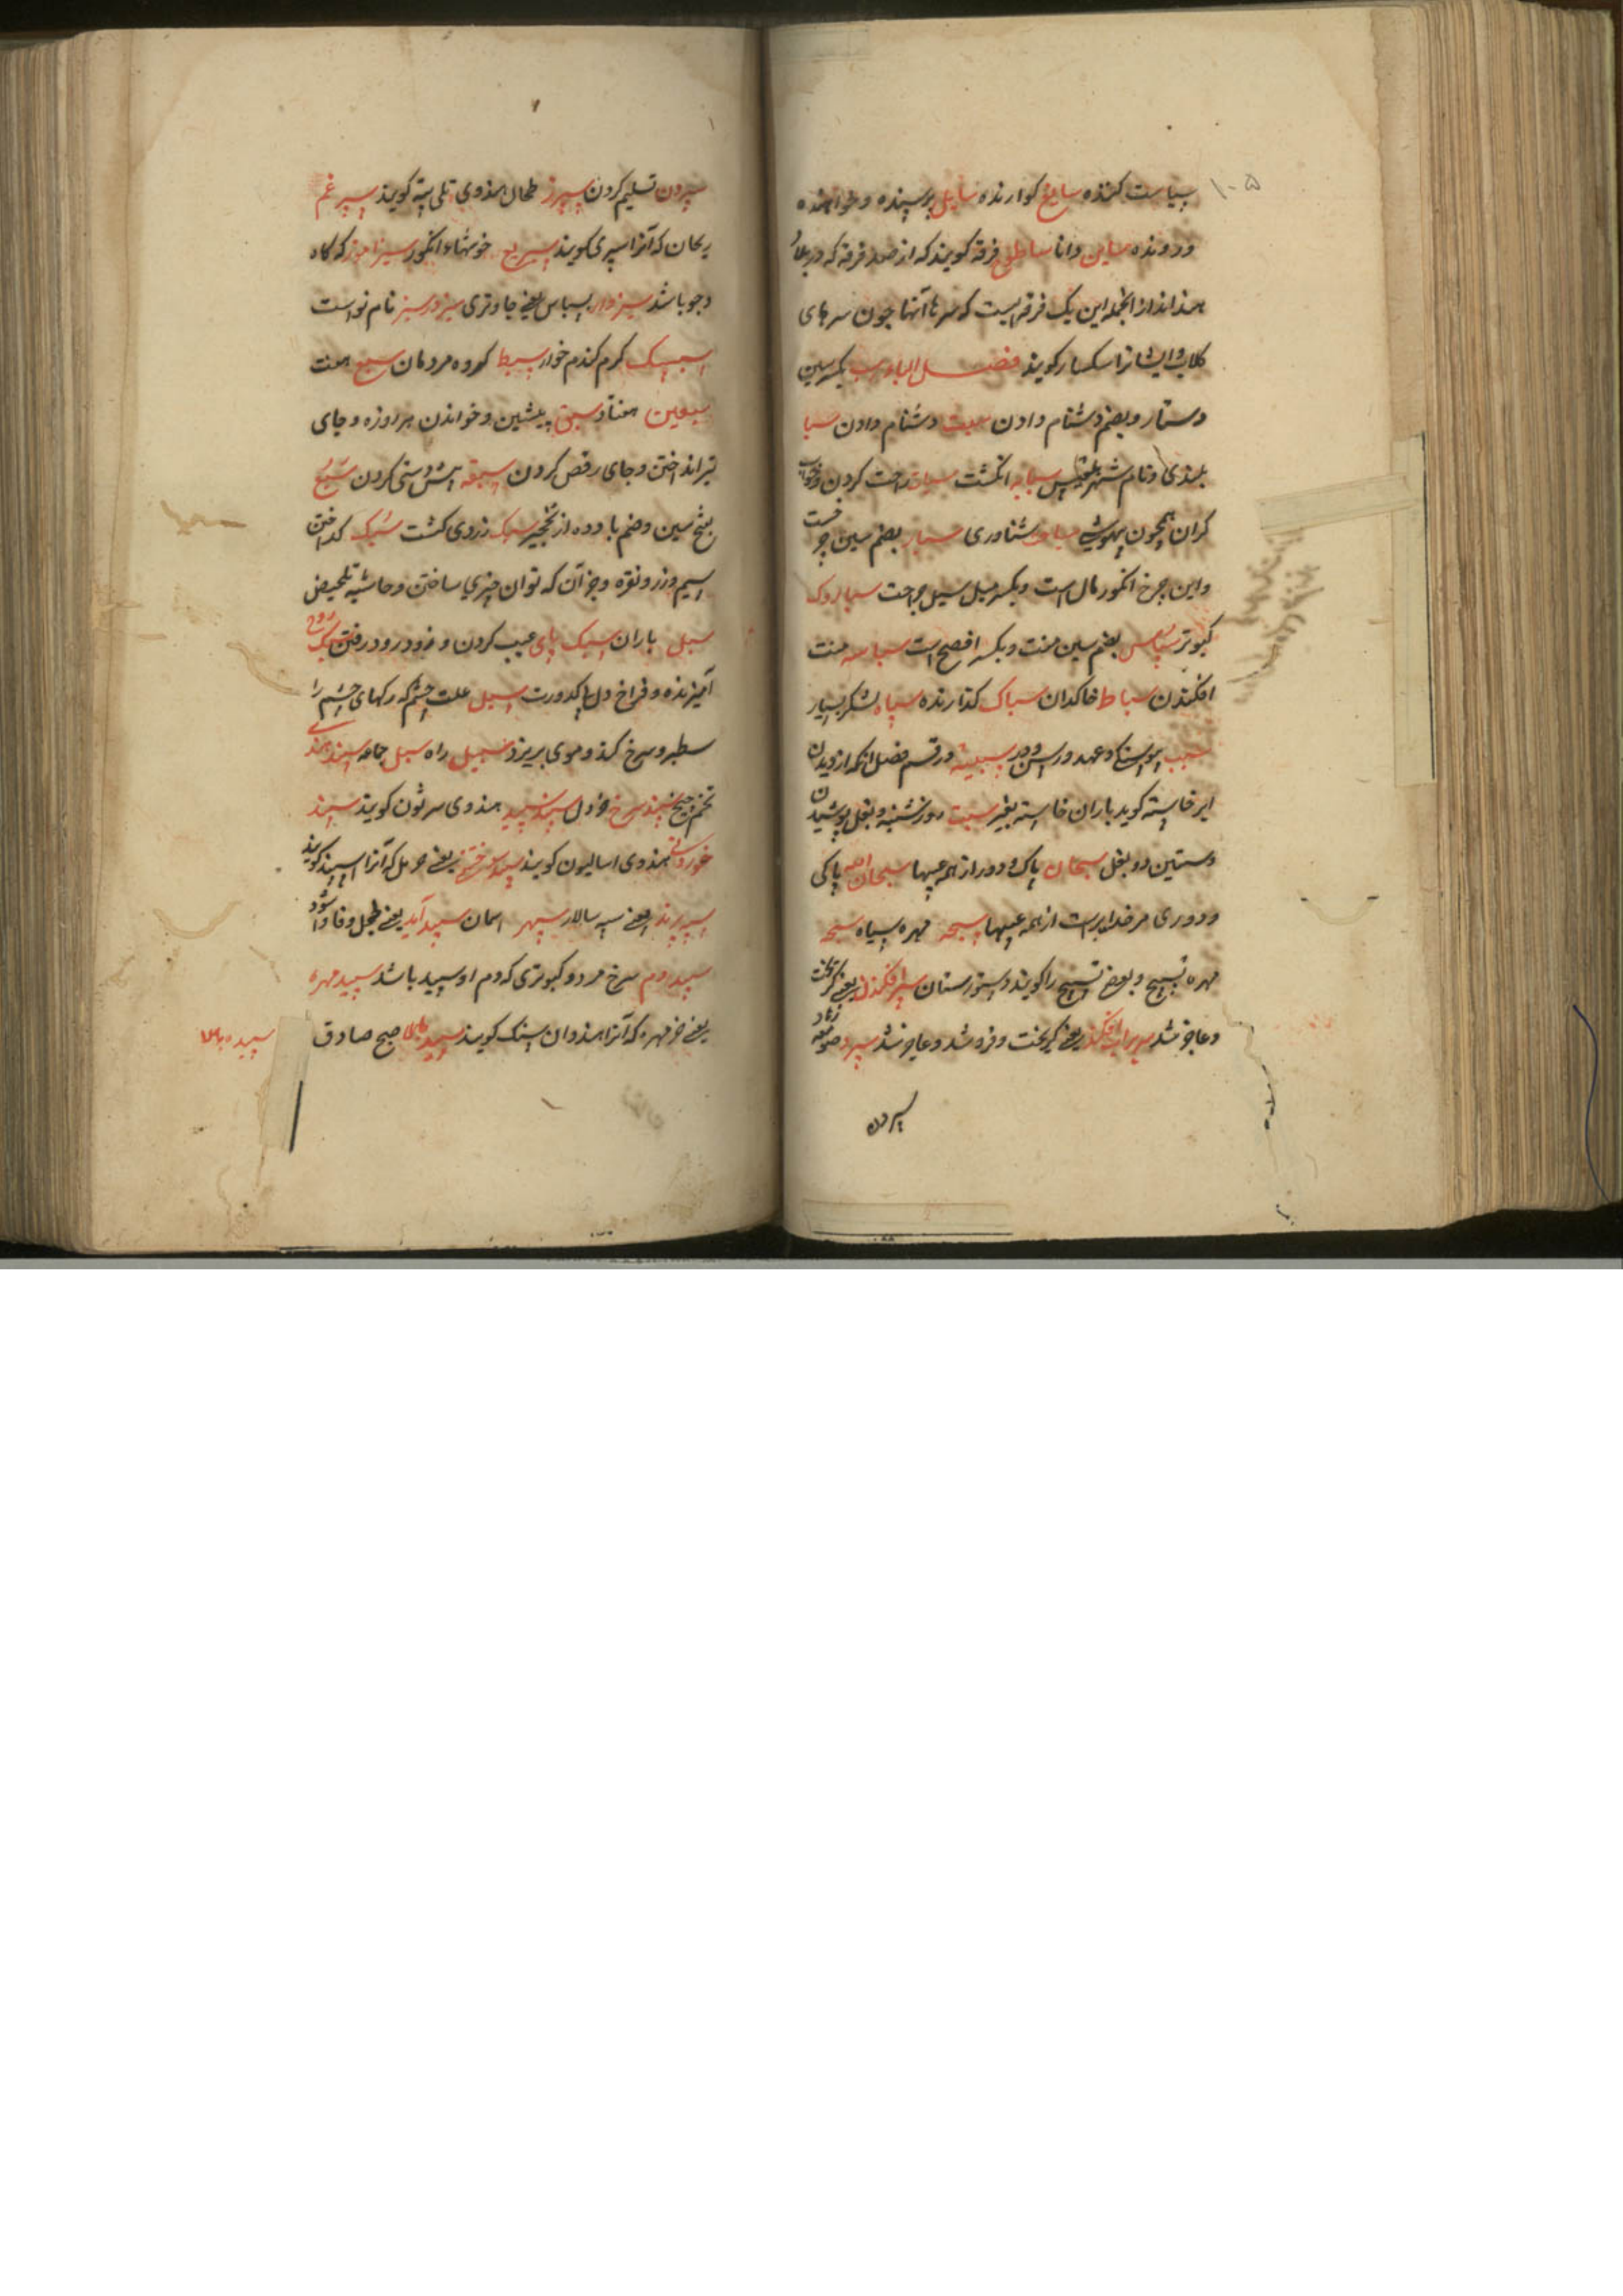 ۱۰۵
سیاست کننده سایغ کوارنده سایل پرسنده و خواهنده
و رونده ساین دانا ساطو فرقه کویند که از صد فرقه که در بلاد
هند اند از انجمله این یک فرقه ایست که سرهاء آنها چون سرهای
کلاب و ایشانرا سکسار کویند فصل الباء سب بکسر سین
دستار و بضم دشنام دادن سبت دشنام دادن سبا
بلندی و نام شهر بلقیس سبابه انکشت سبات راحت کردن و خواب
کران همچون بیهوشی سباحت شناوری سبار بضم سین چرخست
و این چرخ انکور مال است و بکسر میل سیل جراحت سباروک
کبوتر سپاس بضم سین منت و بکسر افصح است سباسه منت
افکندن سباط خاکدان سباک کدارنده سپاه لشکر بسیار
سبب پیوستکی و عهد و رسن و در سبیثه در قسم فصل انکه از دیدن
ابر خاسته کوید باران خاسته بغیر سبت روز شنبه و نعل پوشیدن
دستین دو نعل سبحان پاک و دور از همه عیبها سبحان الله پاکی
و دوری مر خدایراست از همه عیبها سبجه مهره سیاه سبحه
مهره تسبیح و بعضی تسبیح را کویند دستورستان سپر افکند یعنی کریخت
و عاجز شد سپر بر آب افکند یعنی کریخت و فروشد و عاجز شد سپرد صومعه زهاد
سپردن
سپردن تسلیم کردن سپرز طحال هندوی تلی پته کویند سپرغم
ریحان که آنرا سپری کویند سپریع خوشهاء انکور سبزامرز که کاه
و جو باشد سبزدار بسباس یعنی جاوتری سبز در سبز نام نواست
سبسبک کرم کندم خوار سبط کروه مردمان سبع هفت
سبعین هفتاد سبق پیشین و خواندن هر روزه و جای
تیر انداختن و جای رقص کردن سبقه پیش دستی کردن سبع
بفتح سین و ضم با دده از نخجیر سبک زردی کشت سبک کداختن
سیم و زر و نقره و جز آن که توان چیزی ساختن و حاشیه تلمیض
سبل باران سبک پای عیب کردن و زود زود رفتن سبک روح
آمیزنده و فراخ دل بی کدورت سبل علت چشم که رکهای چشم را
سطبر و سرخ کند و موی بریزد سبیل راه سبل جامه سپند هندی
تخم چیچ سپند سرخ خردل سپند سپید هندوی سرثون کویند سپند
خوردنی هندوی اسالیون کویند سپند سوختنی یعنی حرمل که آنرا سپند کویند
سپه پرند یعنی سپه سالار سپهر اسمان سپید آید یعنی خجل و فاذا شود
سپید دم سرخ مرد و کبوتری که دم او سپید باشد سپید مهره
یعنی خرمهره که آنرا هندوان سنک کویند سپیده بالا صبح صادق
سپیده بالا